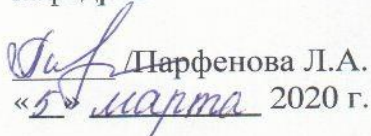 Парфенова Л.А.
«5» марта 2020 г.